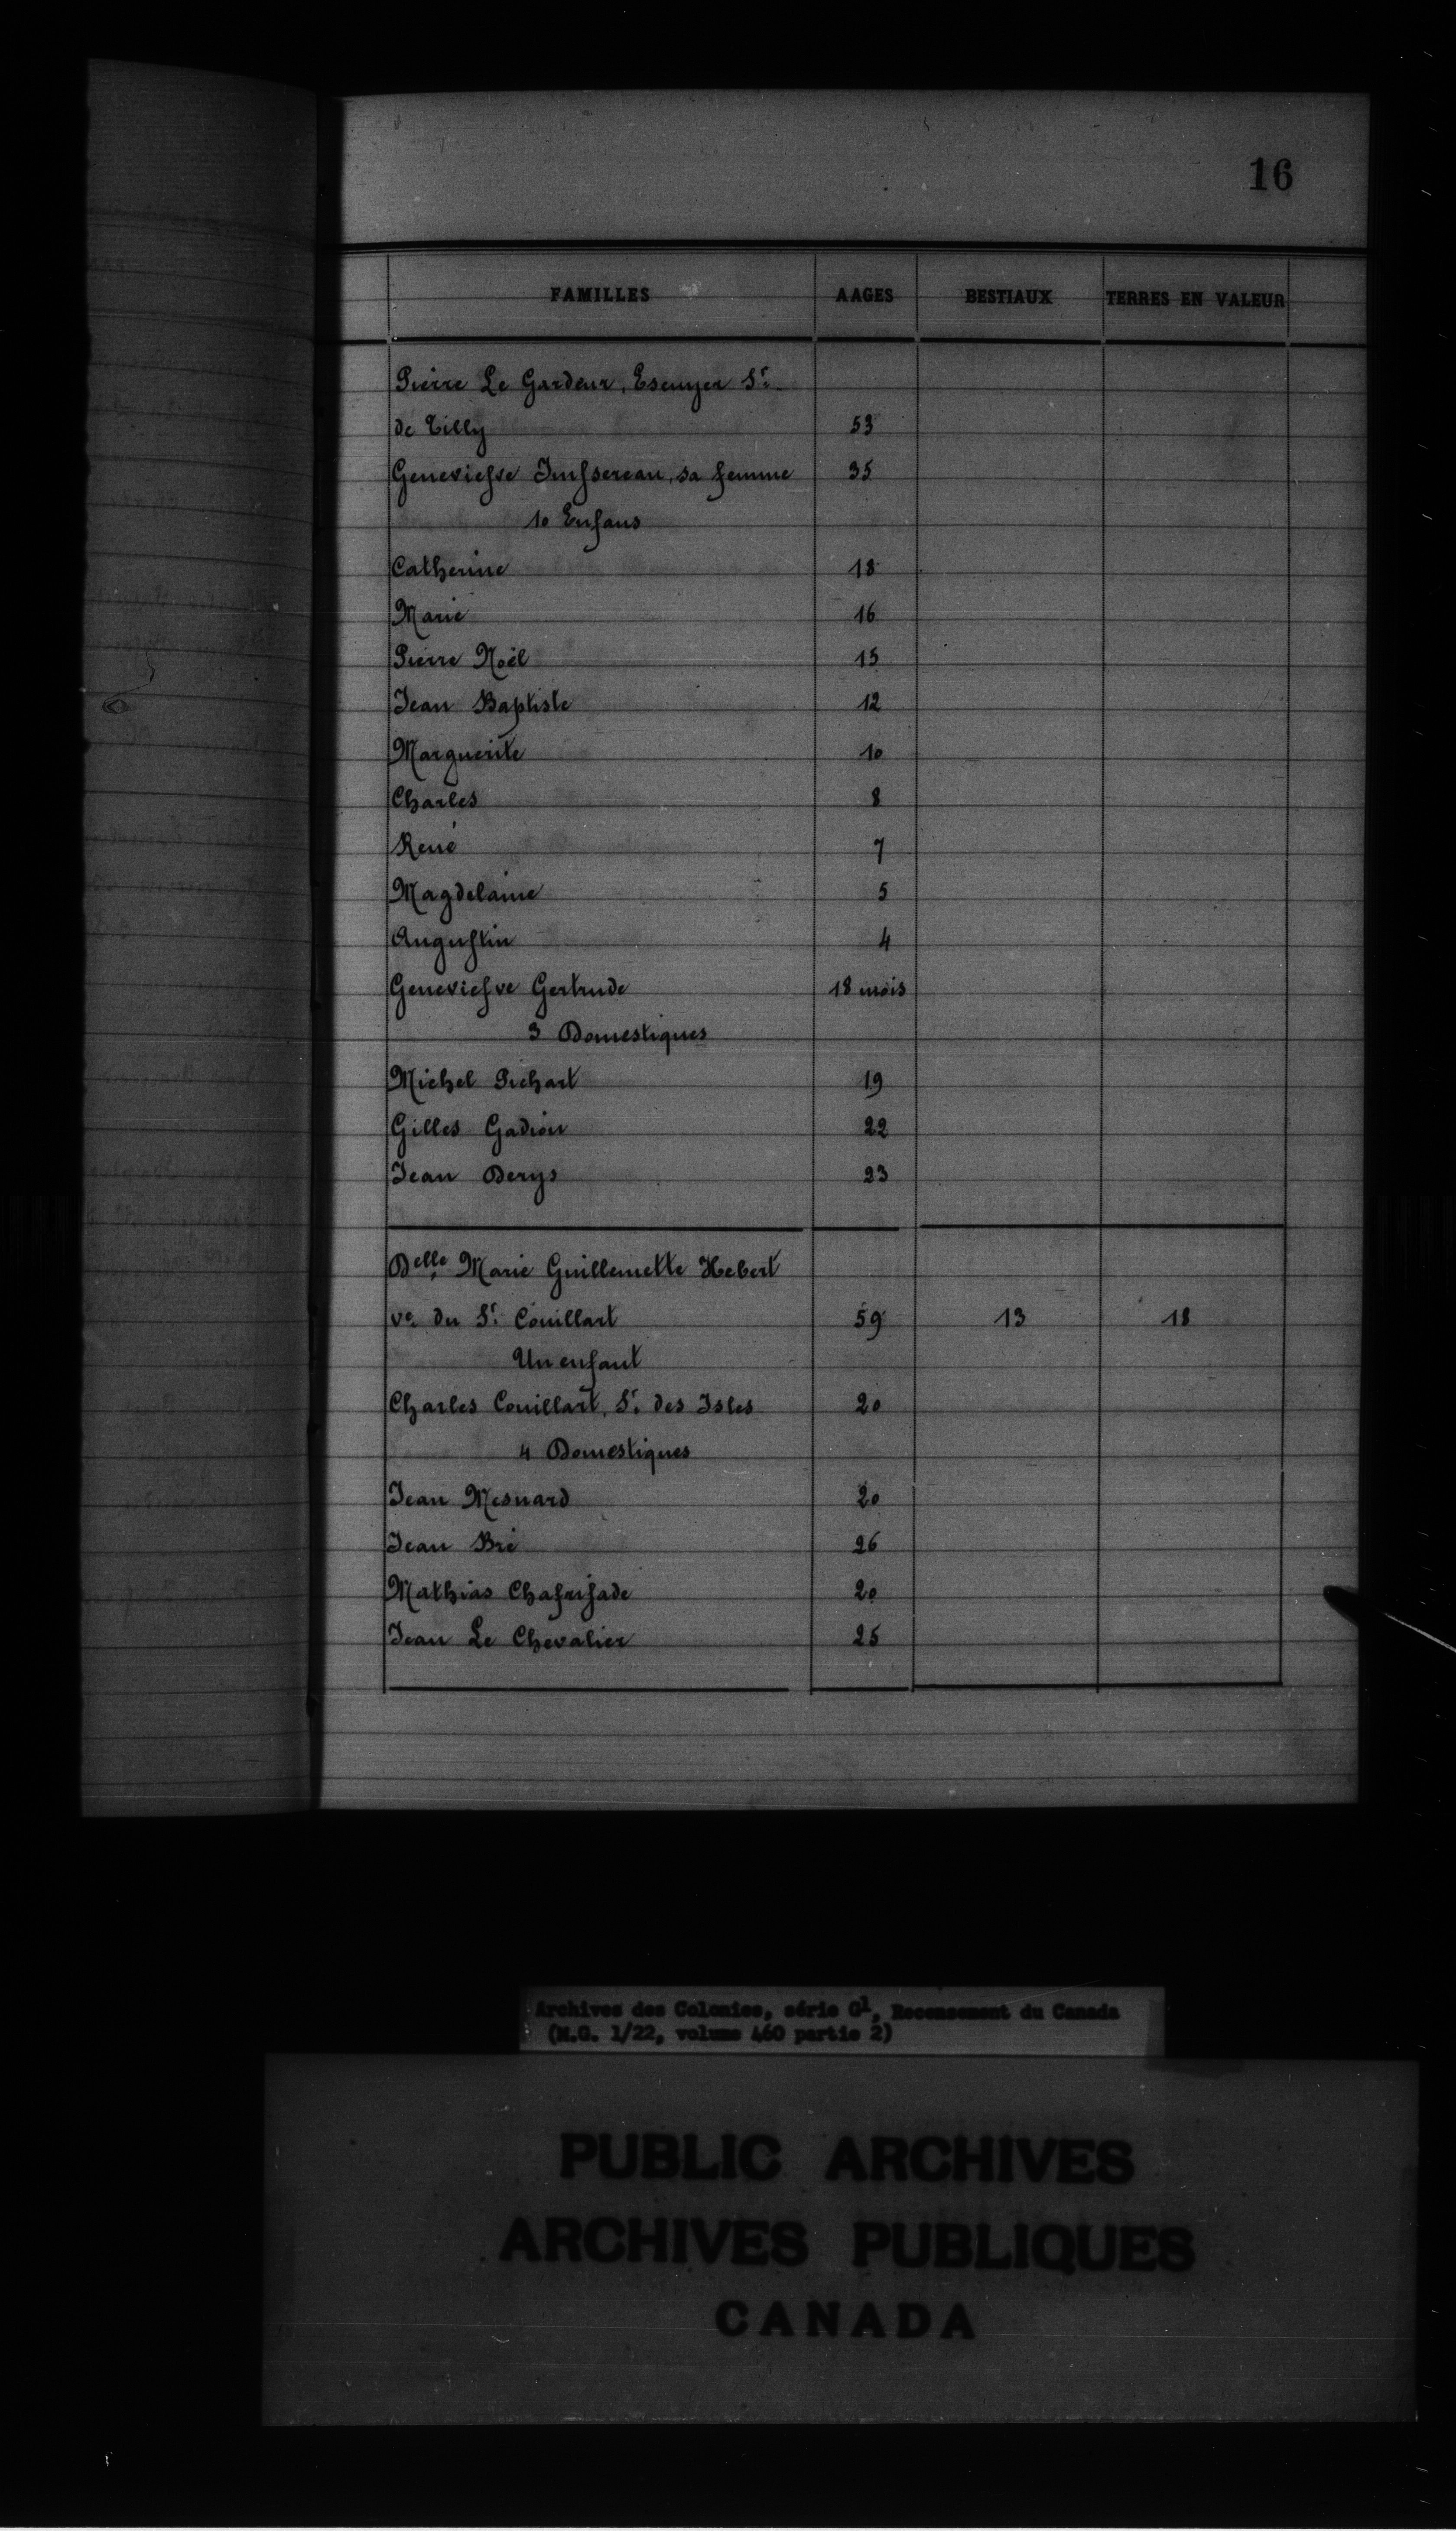 16
FAMILLES AAGES BESTIAUX TERRES EN VALEUR
Pierre Le Gardeur, Escuyer Sr.
de Tilly 53
Geneviefve Jufsereau, sa femme 35
10 Enfans
Catherine 18
Marie 16
Pierre Noël 15
Jean Baptiste 12
Marguerite 10
Charles 8
René 7
Magdelaine 5
Auguftin 4
Geneviefve Gertrude 18 mois
3 Domestiques
Michel Pichart 19
Gilles Gadion 22
Jean Derys 23
Delle Marie Guillemette Hebert
ve. du Sr. Couillart 59 13 18
Un enfant
Charles Couillart, Sr. des Isles 20
4 Domestiques
Jean Mesnard 20
Jean Bré 26
Mathias 20
Jean Le Chevalier 25
Archives des Colonies, série G1, Recensement du Canada
(M.G. 1/22, volume 460 partie 2)
PUBLIC ARCHIVES
ARCHIVES PUBLIQUES
CANADA